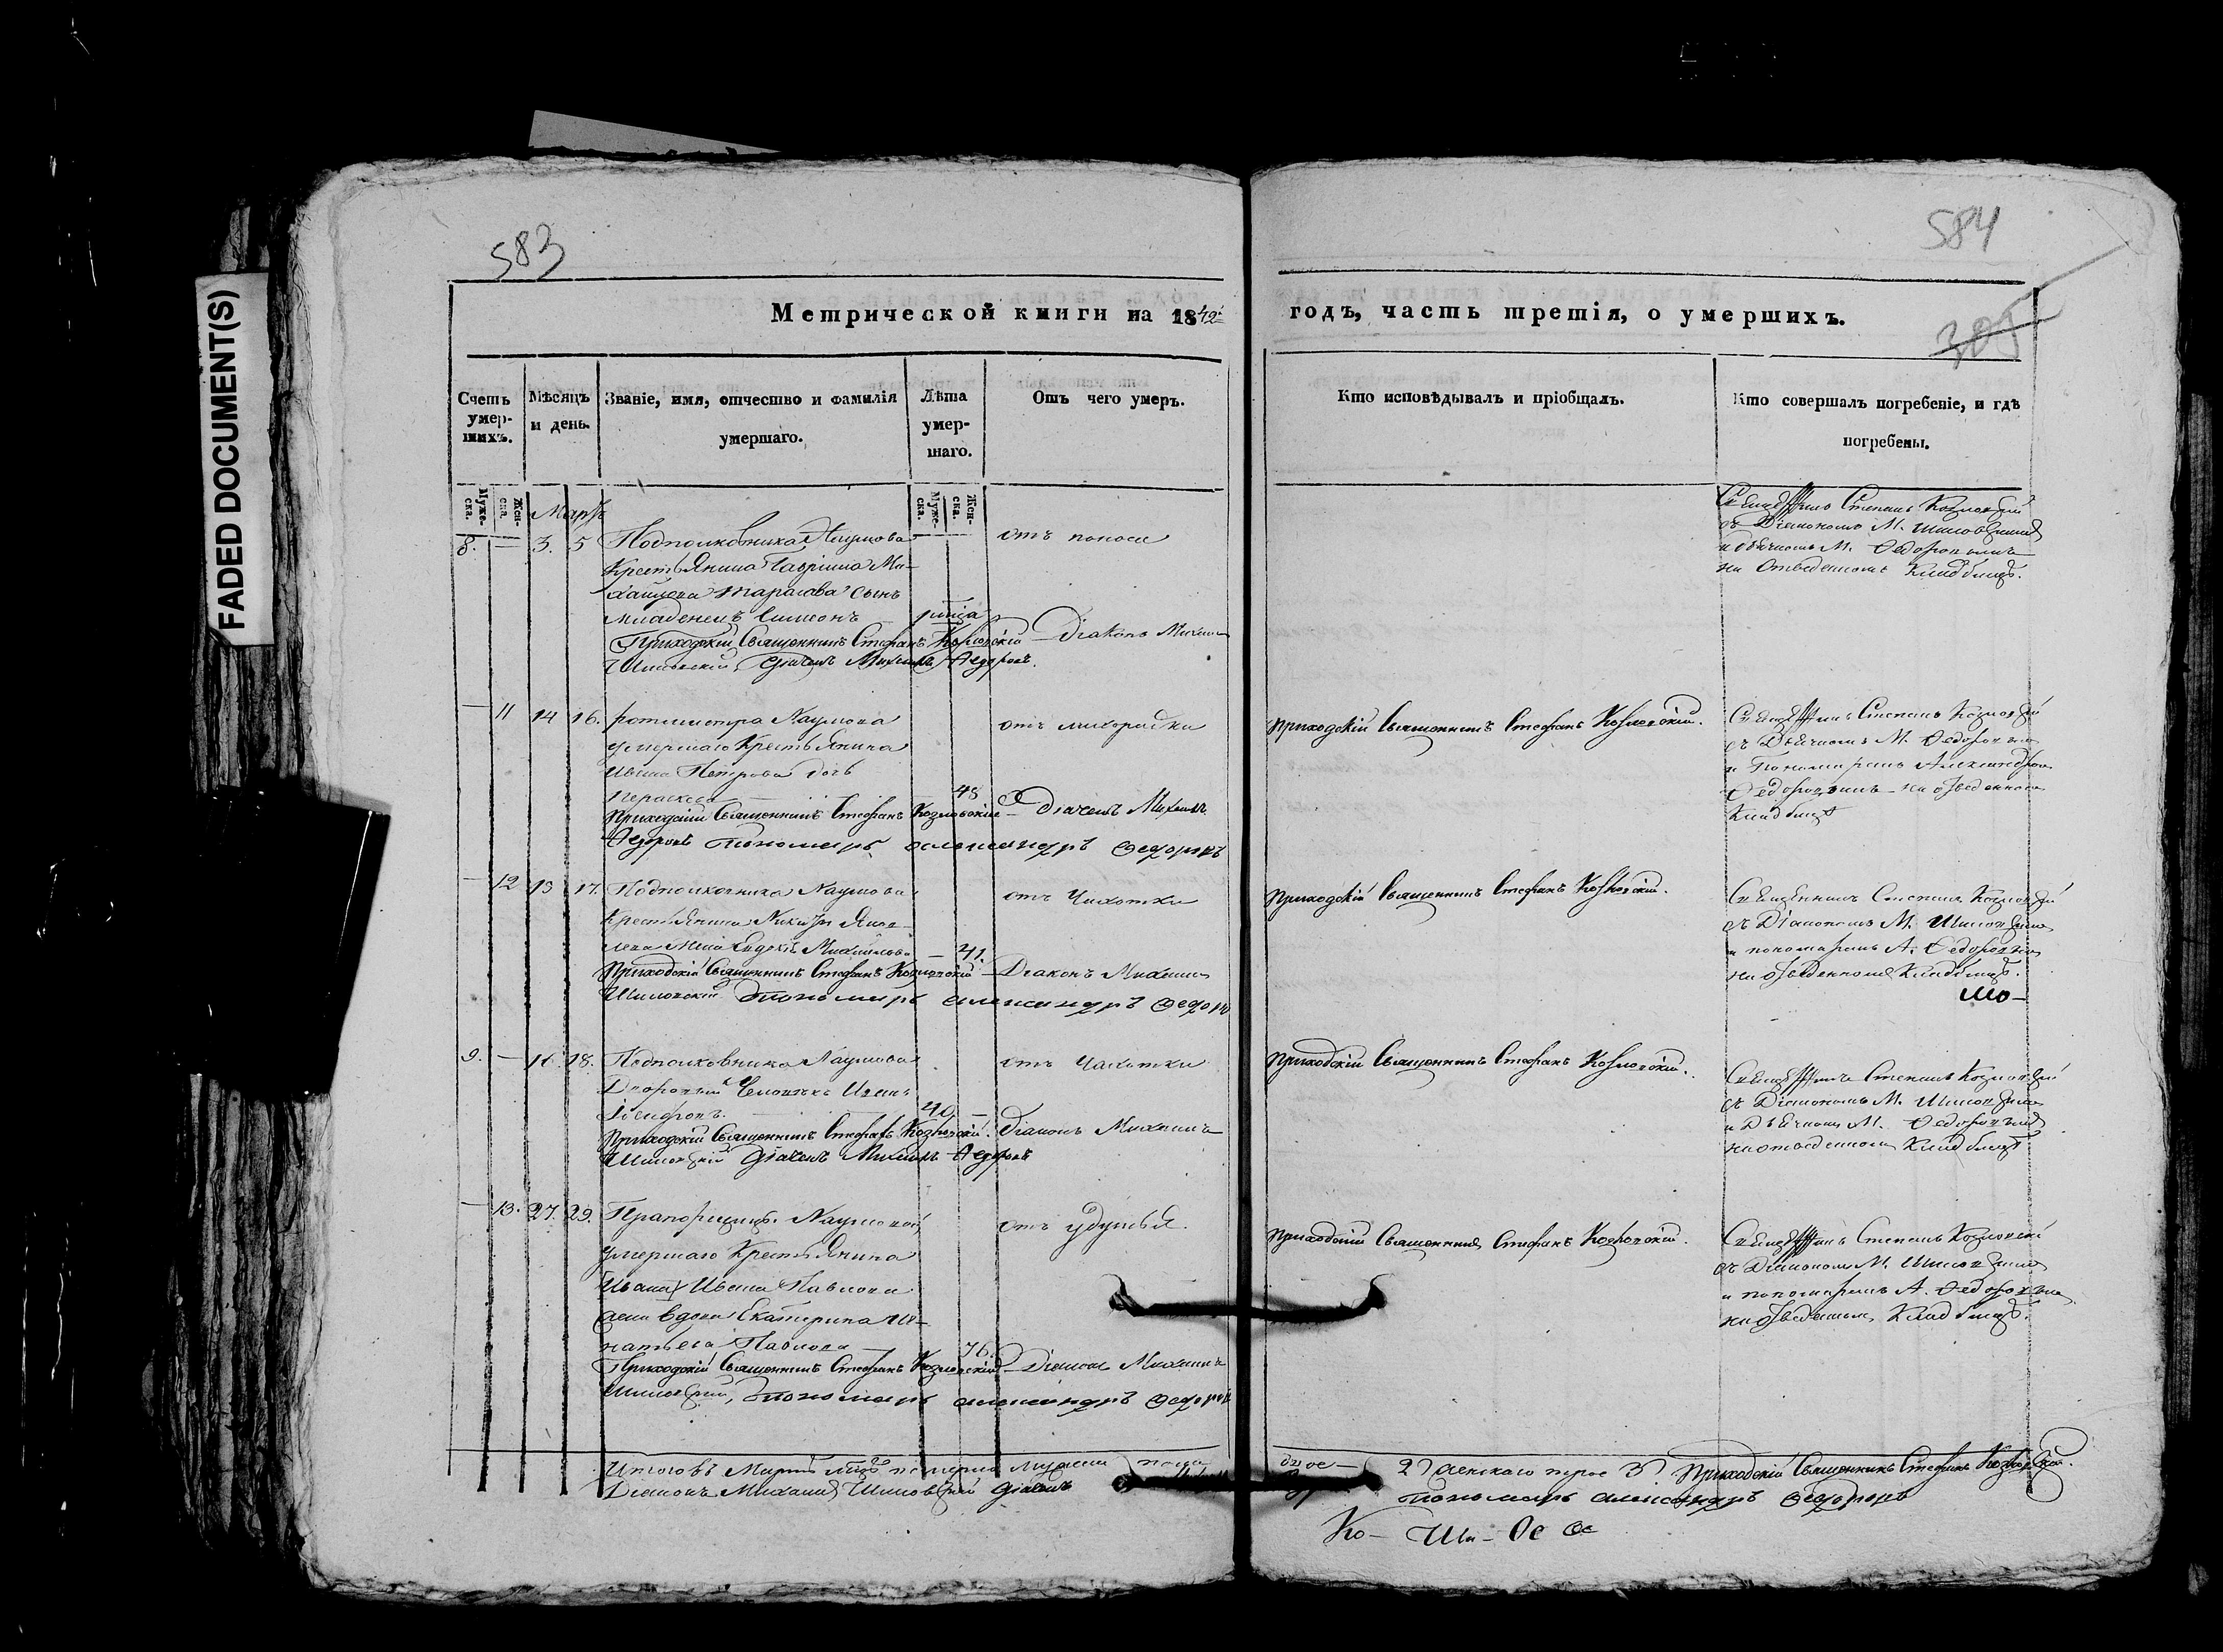 FADED DOCUMENT(S)
583
584
Метрической книги на 1842
годъ, часть третія, о умершихъ.
305
Счетъ умер-шихъ.
Мѣсяцъ и день.
Званіе, имя, отчество и фамилія умершаго.
Лѣта умер-шаго.
Отъ чего умеръ.
Кто исповѣдывалъ и пріобщалъ.
Кто совершалъ погребеніе, и гдѣ погребены.
Муже-ска.
Жен-ска.
Муже-ска.
Жен-ска.
Мартъ
8. — 3. 5
Подполковника Наумова
Крестьянина Гавріила Ми-
хайлова Тарасова сынъ
младенецъ Симеонъ
отъ поноса
Приходскій Священникъ Стефанъ Козловскій Діаконъ Михаилъ
Шиловскій Дьячекъ Михаилъ Федоровъ.
Священникъ Степанъ Козловскій
съ Діакономъ М. Шиловскимъ
и Дьячкомъ М. Федоровымъ
на Отведенномъ Кладбищѣ.
— 11 14 16.
ротмистра Наумова
умершаго Крестьянина
Ивана Петрова дочь
48
отъ лихорадки
Приходскій Священникъ Стефанъ Козловскій Дьячекъ Михаилъ
Федоровъ Пономарь Александръ Федоровъ
Приходскій Священникъ Стефанъ Козловскій.
Священникъ Степанъ Козловскій
съ Дьячкомъ М. Федоровымъ
и Пономаремъ Александромъ
Федоровымъ на отведенномъ
Кладбищѣ
— 12 13 17.
Подполковника Наумова
Крестьянина
жена Михайлова — 41.
отъ Чахотки
Приходскій Священникъ Стефанъ Козловскій Діаконъ Михаилъ
Шиловскій Пономарь Александръ Федоровъ
Приходскій Священникъ Стефанъ Козловскій.
Священникъ Степанъ Козловскій
съ Діакономъ М. Шиловскимъ
и пономаремъ А. Федоровымъ
на отведенномъ Кладбищѣ.
Шо-
9. — 16. 18.
Подполковника Наумова
Дворовый Человѣкъ Иванъ
40 —
отъ Чахотки
Приходскій Священникъ Стефанъ Козловскій. Діаконъ Михаилъ
Шиловскій Дьячекъ Михаилъ Федоровъ
Приходскій Священникъ Стефанъ Козловскій.
Священникъ Степанъ Козловскій
съ Діакономъ М. Шиловскимъ
и Дьячкомъ М. Федоровымъ
на отведенномъ Кладбищѣ.
— 13. 27. 29.
Прапорщицы Наумовой
умершаго Крестьянина
Ивана Ивана Павлова
вдова Екатерина Иг-
натьева Павлова — 76.
отъ удушья.
Приходскій Священникъ Стефанъ Козловскій Діаконъ Михаилъ
Шиловскій, Пономарь Александръ Федоровъ
Приходскій Священникъ Стефанъ Козловскій.
Священникъ Степанъ Козловскій
съ Діакономъ М. Шиловскимъ
и пономаремъ А. Федоровымъ
на отведенномъ Кладбищѣ.
Итого въ Мартѣ померло мужеска пола двое — 2 женскаго трое 3 Приходскій Священникъ Стефанъ Козловскій.
Діаконъ Михаилъ Шиловскій Дьячекъ
пономарь Александръ Федоровъ
Ко- Ши- Ѳе Ѳе